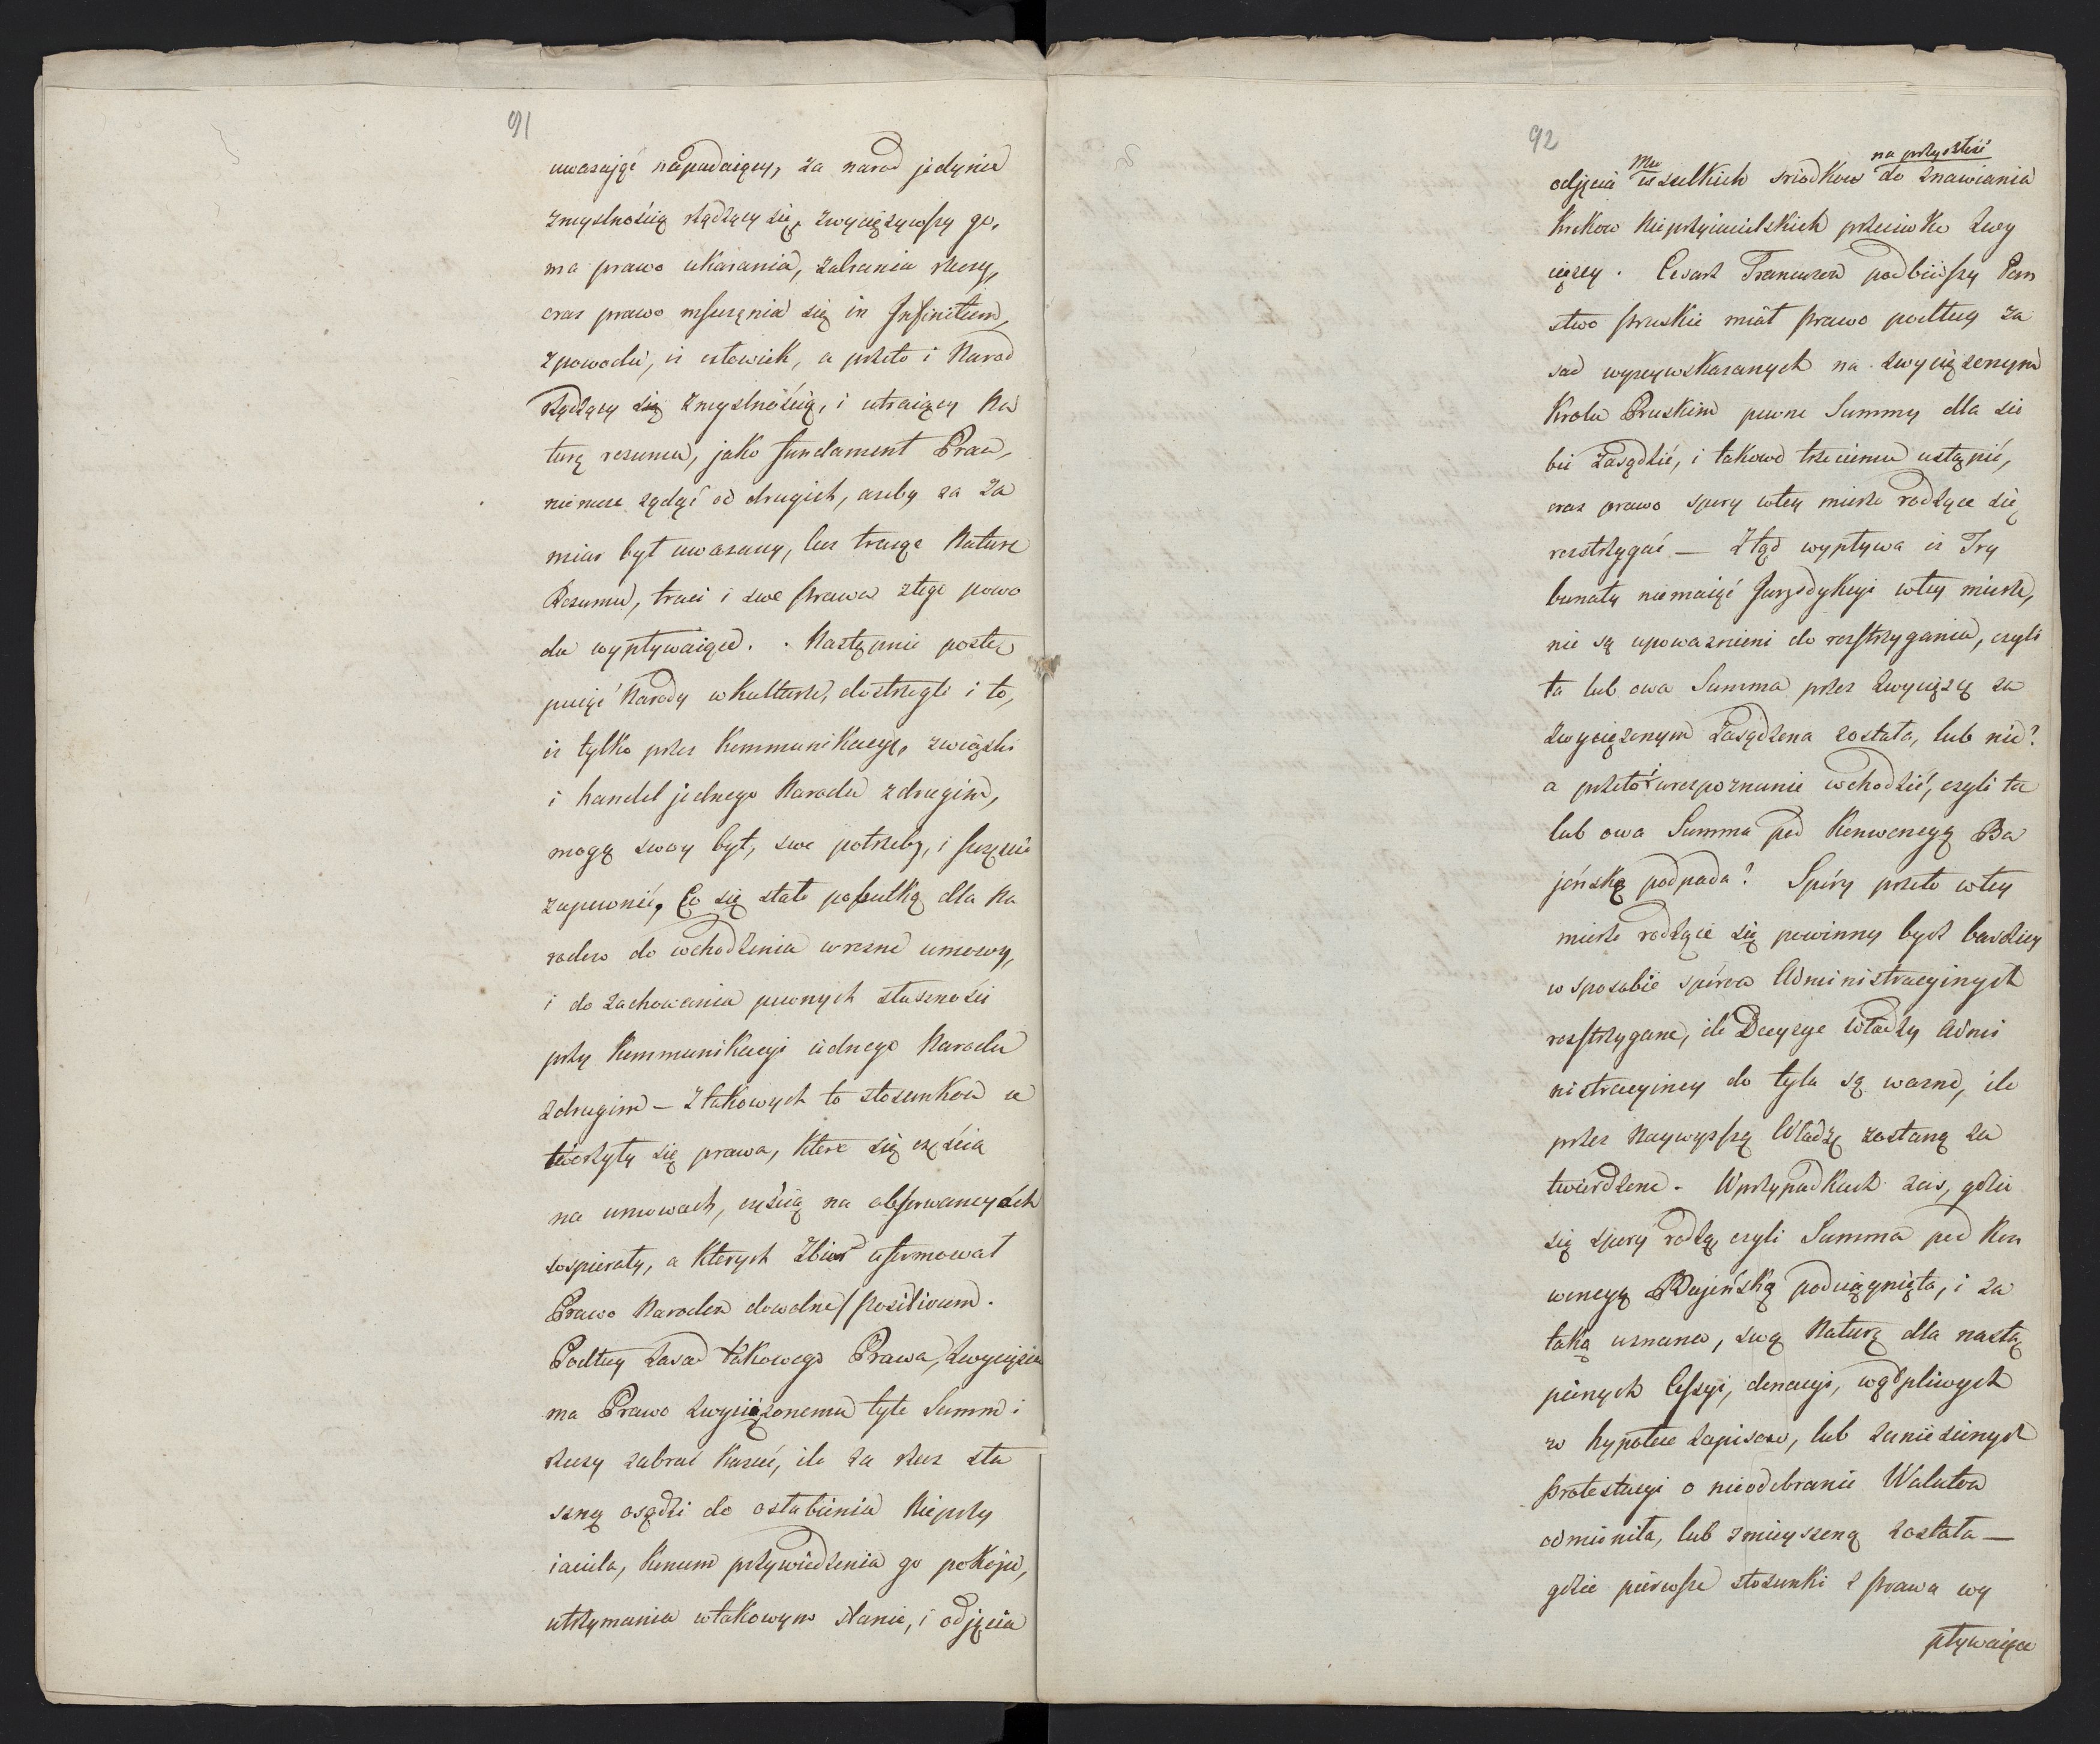 91
uwazaiąć napadaiący, za narod jedynie
zmyslnością rządzący się, zwyciężywszy go,
ma prawo ukarania, zabrania rzeczy,
oraz prawo mszczenia się in Infinitum,
z powodu, iż człowiek, a przeto i Narod
rządzący się zmyslnością, i utraiący Na
turę rozumu, jako fundament Praw,
niemoze ządać od drugich, azeby za Za
miar był uwazany, lecz tracąc Nature
Rozumu, traci i swe Prawa z tego powo
du wypływaiące. . Następnie postę
puiąć Narody w kulturze, dostrzegli i to,
iż tylko przez Kommunikacye, związki
i handel jednego Narodu z drugim,
mogą swoy byt, swe potrzeby, i szczęście
zapewnić, Co się stało pobudką dla Na
rodow do wchodzenia w rozne umowy,
i do zachowania pewnych słusznosci
przy Kommunikacyi iednego Narodu
z drugim — Z takowych to stosunkow u
tworzyły się prawa, ktore się częścią
na umowach, częścią na obserwancyach
wspierały, a ktorych Zbior uformował
Prawo Narodow dowolne / Positivum.
Podług zasad takowego Prawa, Zwycięzca
ma Prawo zwyciężonemu tyle Summ i
rzeczy zabrać kazać, ile za rzecz słu
szną osądzi do osłabienia Nieprzy
iaciela, koncem przywiedzenia go pokoju,
utrzymania w takowym stanie, i odjęcia
92
odjęcia mu wszelkich srzodkow do na przyszłość znawiania
krokow Nieprzyiacielskich przeciwko Zwy
cięzcy. Cesarz Francuzow podbiwszy Pan
stwo Pruskie miał Prawo podług za
sad wyzey wskazanych na zwyciężonym
Krolu Pruskim pewne Summy dla sie
bie zasądzić, i takowe trzeciemu ustąpić,
oraz prawo spory w tey mierze rodzące się
rozstrzygać — Ztąd wypływa iż Try
bunały niemaiąć Juryzdykcyi w tey mierze,
nie są upowaznieni do rozstrzygania, czyli
ta lub owa Summa przez Zwycięzcę za
zwyciężonym zasądzona została, lub nie?
a przeto i w rozpoznanie wchodzić, czyli ta
lub owa Summa pod Konwencyą Ba
jońską podpada? Spóry przeto w tey
mierze rodzące się powinny bydź bardziey
w sposobie spórow Administracyinych
rozstrzygane, ile Decyzye Władzy Admi
nistracyiney do tyla są wazne, ile
przez Naywyższą Władzę zostaną za
twierdzone. W przypadkach zaś, gdzie
się spory rodzą, czyli Summa pod Kon
wencyą Bajońską podciągnięta, i za
taką uznana, swą Naturę dla nastę
pionych Cessyi, donacyi, wątpliwych
w hypotece zapisow, lub zaniesionych
Protestacyi o nieodebranie Walutow
odmieniła, lub zmieyszoną została —
gdzie pierwsze stosunki z Prawa wy
pływaiące